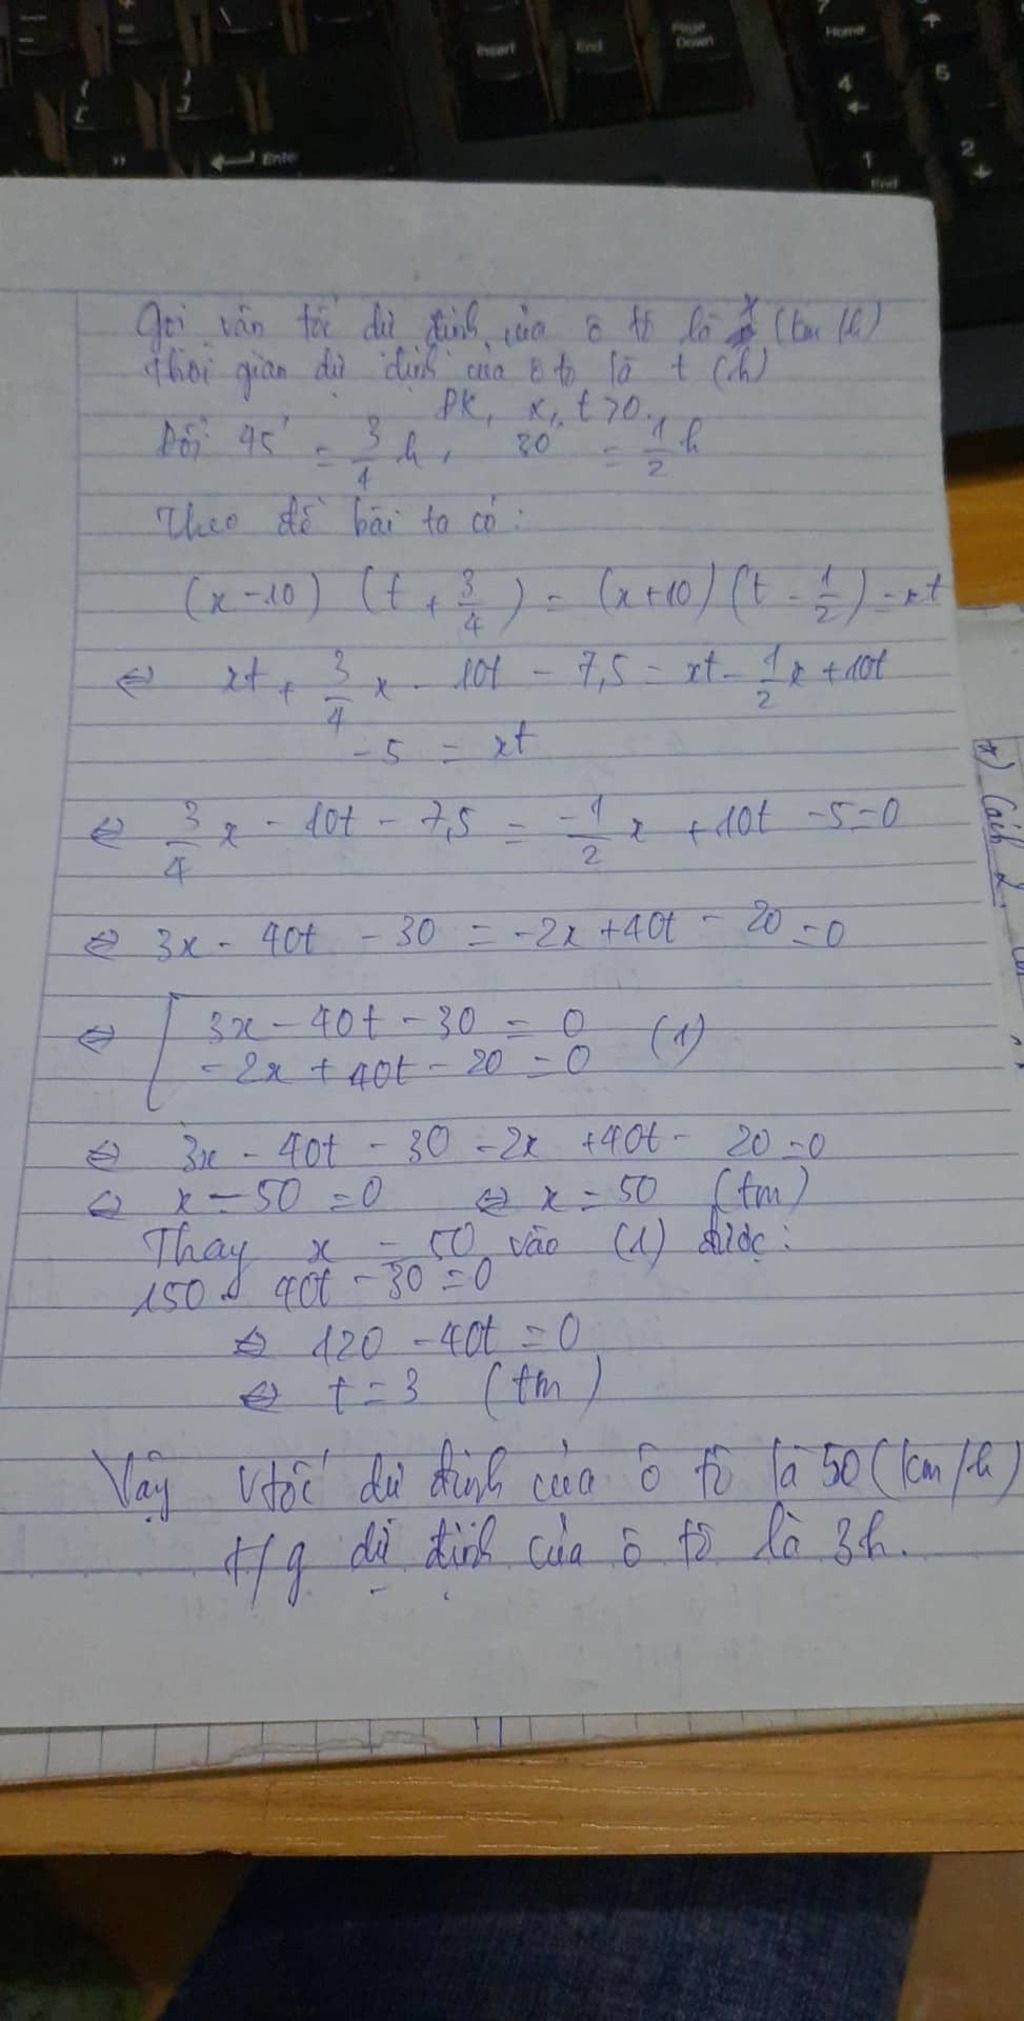 Insert End Page Down
7 Home
4
5
1 End
2
Enter
Gọi vân tốc dự định của ô tô là x (km/h)
thời gian dự định của ô tô là t (h)
ĐK, x, t > 0.
Đổi 45' = 3/4 h, 30' = 1/2 h
Theo đề bài ta có:
(x-10) (t + 3/4) = (x+10) (t - 1/2) = xt
⇔ xt + 3/4 x - 10t - 7,5 = xt - 1/2 x + 10t
- 5 = xt
⇔ 3/4 x - 10t - 7,5 = -1/2 x + 10t - 5 = 0
⇔ 3x - 40t - 30 = -2x + 40t - 20 = 0
⇔ [ 3x - 40t - 30 = 0 (1)
- 2x + 40t - 20 = 0
⇔ 3x - 40t - 30 - 2x + 40t - 20 = 0
⇔ x - 50 = 0 ⇔ x = 50 (tm)
Thay x = 50 vào (1) được:
150 - 40t - 30 = 0
⇔ 120 - 40t = 0
⇔ t = 3 (tm)
Vậy vtốc dự định của ô tô là 50 (km/h)
t/g dự định của ô tô là 3h.
*) Cách 2: